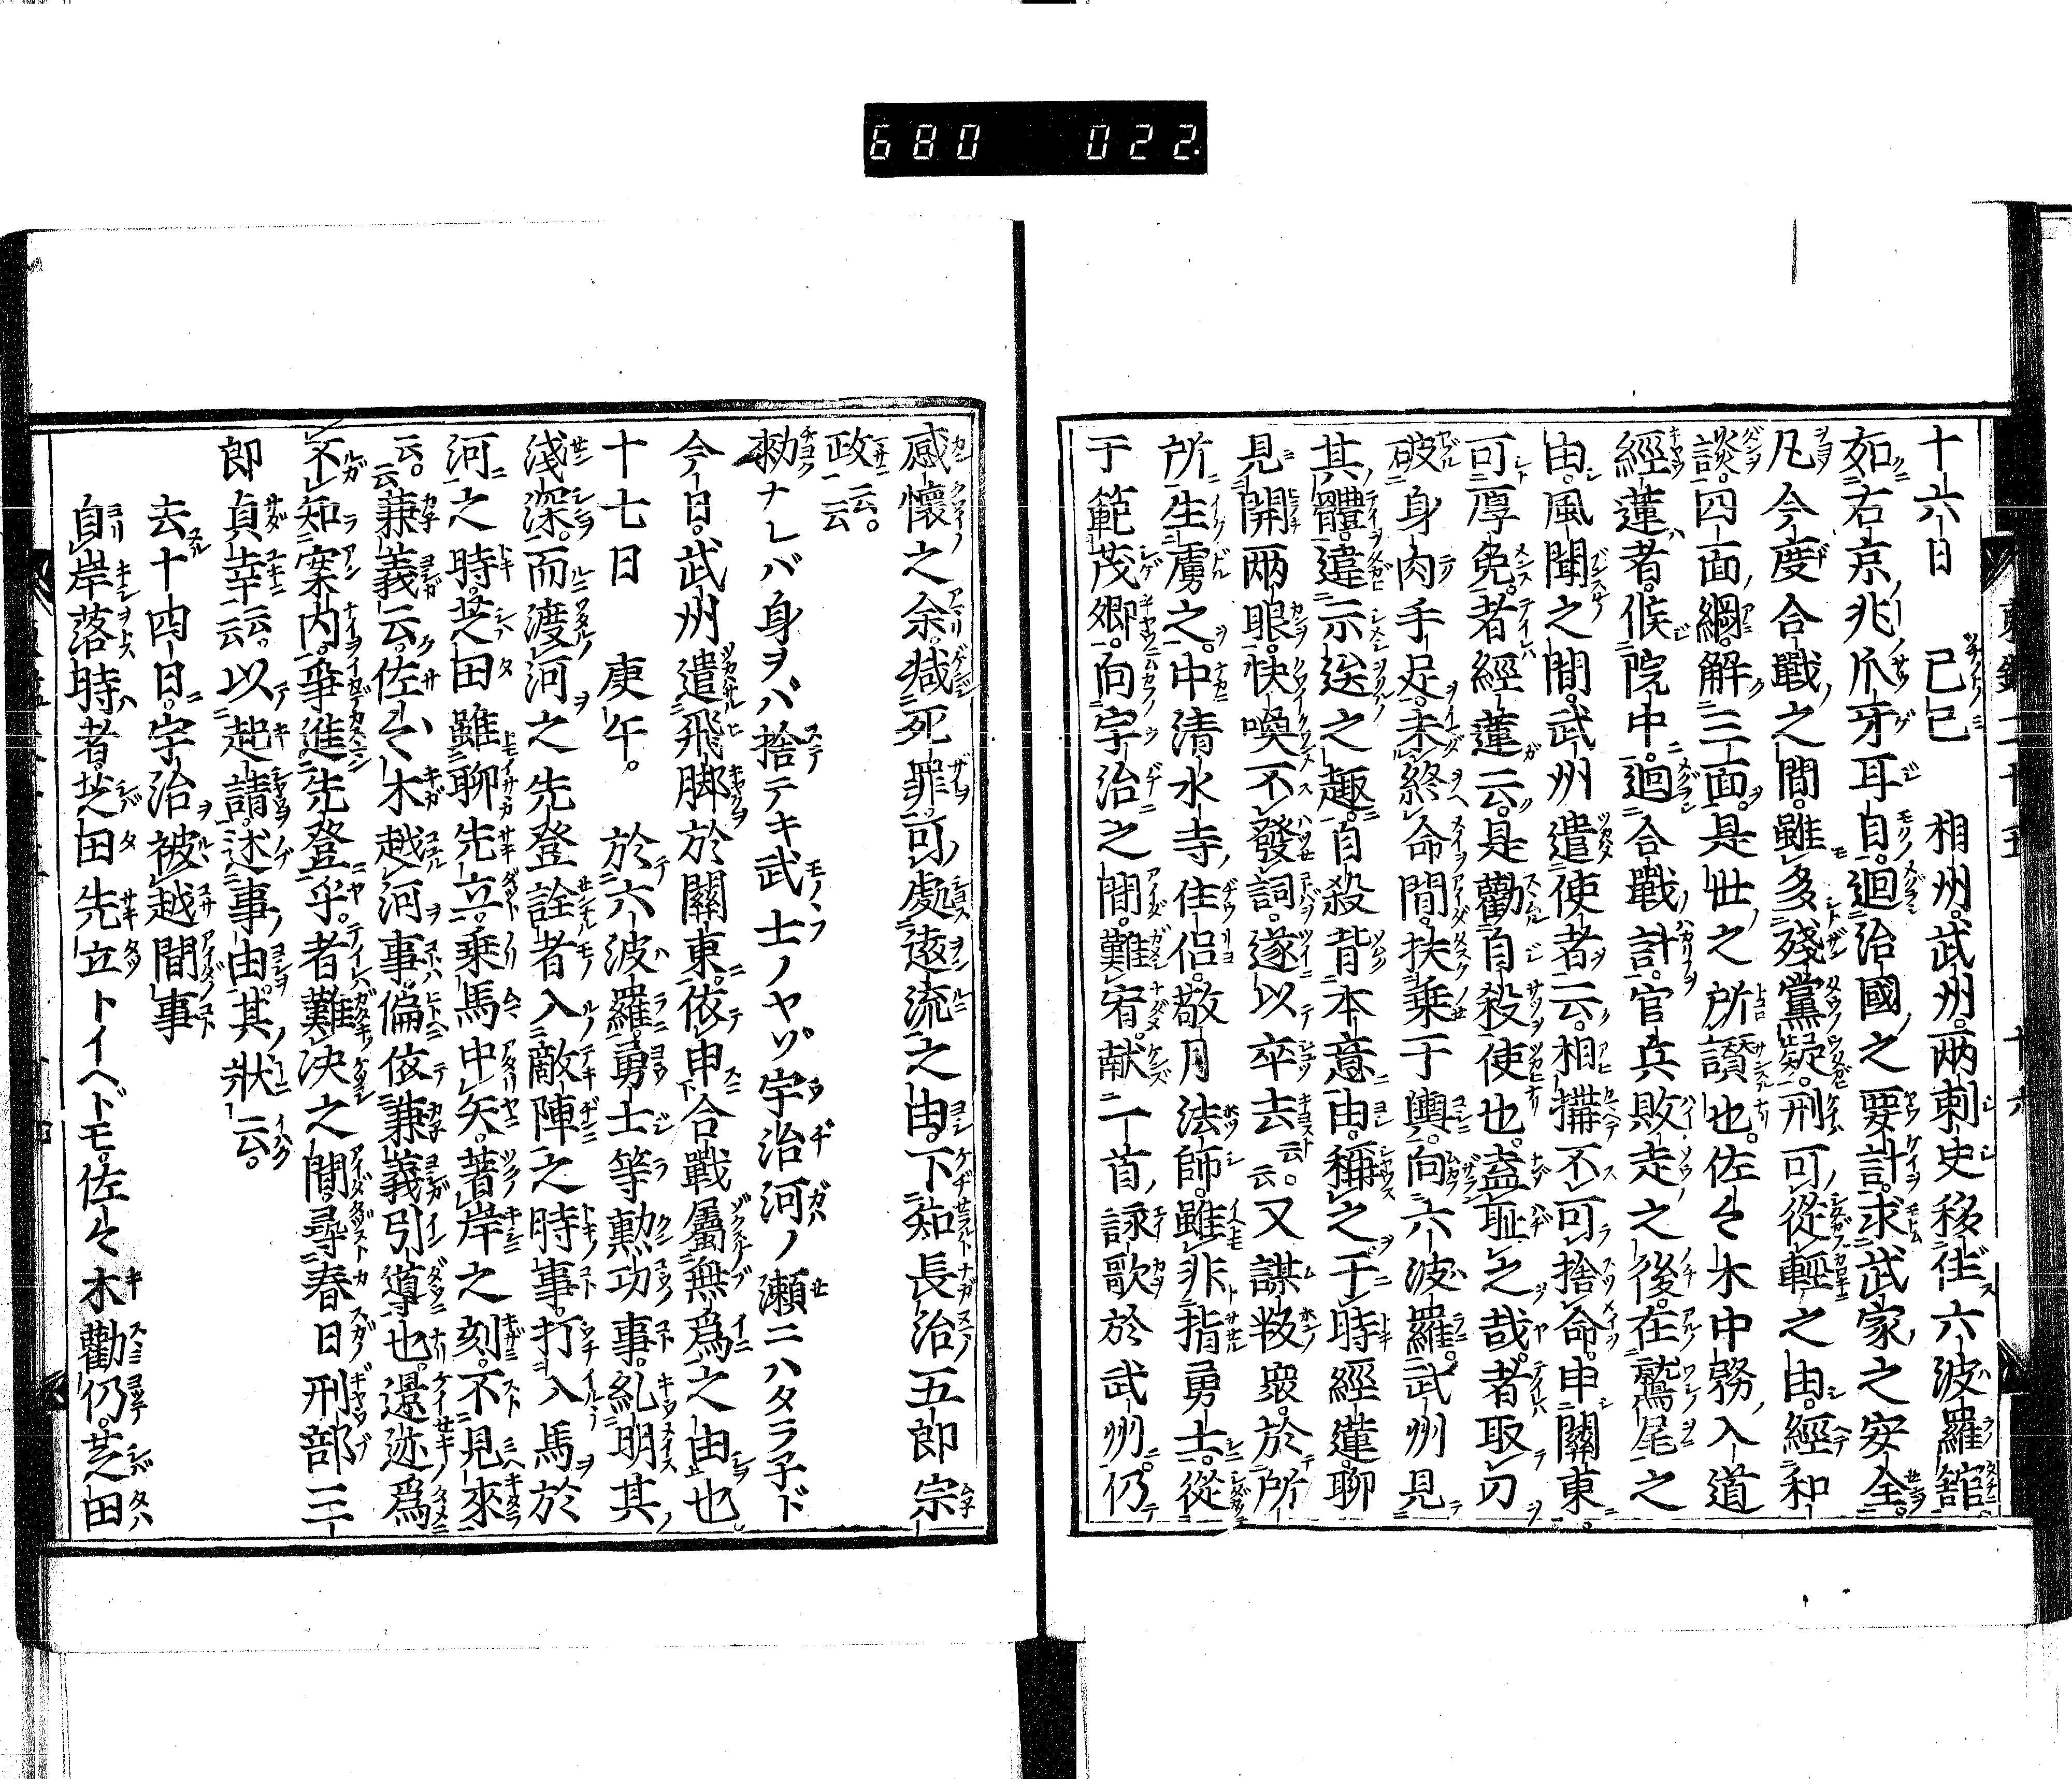 680 022.
十六日 己巳 相州。武州。兩刺史移住六波羅舘。
如右京兆爪牙耳自。迴治國之要計。求武家之安全。
凡今度合戰之間。雖多殘黨疑刑可從輕之由。經和
談。四面網。解三面。是世之所讃也。佐々木中務入道
經蓮者。候院中。迴合戰計。官兵敗走之後。在鷲尾之
由。風聞之間。武州遣使者云。相搆不可捨命。申關東。
可厚免。者經蓮云。是勸自殺使也。盍恥之哉。者取刀
破身肉手足。未終命間。扶乗于輿。向六波羅。武州見
其體。違示送之趣。自殺背本意由。稱之。于時經蓮聊
見開兩眼。快喚不發詞。遂以卒去云云。又謀叛衆。於所
所生虜之。中清水寺住侶。敬月法師。雖非指勇士。從
于範茂卿。向宇治之間。難宥。献一首詠歌於武州。仍
感懷之余。减死罪。可處遠流之由。下知長沼五郎宗
政云云。
勅ナレバ身ヲバ捨テキ武士ノヤソ宇治河ノ瀬ニハタヽ子ド
今日。武州遣飛脚於關東。依申合戰屬無爲之由也。
十七日 庚午。 於六波羅。勇士等勳功事。糺明其
淺深。而渡河之先登詮者入敵陣之時事。打入馬於
河之時。芝田雖聊先立。乗馬中矢。著岸之刻。不見來
云云。兼義云。佐々木越河事。偏依兼義引導也。還迹爲
不知案内。爭進先登乎。者難決之間。尋春日刑部三
郎貞幸云云。以起請述事由。其狀云。
去十四日。宇治被越間事
自岸落時者。芝田先立トイヘドモ。佐々木勸仍。芝田